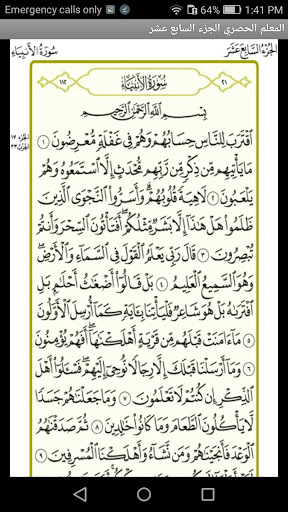 Emergency calls only 1:41 PM
المعلم الحصري الجزء السابع عشر
الجُزْءُ السَّابِعَ عَشَرَ سُورَةُ الأَنبِيَاءِ
٢١ سُورَةُ الأَنبِيَاءِ ١١٢
بِسْمِ اللَّهِ الرَّحْمَٰنِ الرَّحِيمِ
الجزء ١٧
الحزب ٣٣
ٱقْتَرَبَ لِلنَّاسِ حِسَابُهُمْ وَهُمْ فِي غَفْلَةٍ مُّعْرِضُونَ ١
مَا يَأْتِيهِم مِّن ذِكْرٍ مِّن رَّبِّهِم مُّحْدَثٍ إِلَّا ٱسْتَمَعُوهُ وَهُمْ
يَلْعَبُونَ ٢ لَاهِيَةً قُلُوبُهُمْ وَأَسَرُّوا۟ ٱلنَّجْوَى ٱلَّذِينَ
ظَلَمُوا۟ هَلْ هَٰذَآ إِلَّا بَشَرٌ مِّثْلُكُمْ أَفَتَأْتُونَ ٱلسِّحْرَ وَأَنتُمْ
تُبْصِرُونَ ٣ قَالَ رَبِّي يَعْلَمُ ٱلْقَوْلَ فِي ٱلسَّمَآءِ وَٱلْأَرْضِ
وَهُوَ ٱلسَّمِيعُ ٱلْعَلِيمُ ٤ بَلْ قَالُوٓا۟ أَضْغَٰثُ أَحْلَٰمٍ بَلِ
ٱفْتَرَىٰهُ بَلْ هُوَ شَاعِرٌ فَلْيَأْتِنَا بِـَٔايَةٍ كَمَآ أُرْسِلَ ٱلْأَوَّلُونَ
٥ مَآ ءَامَنَتْ قَبْلَهُم مِّن قَرْيَةٍ أَهْلَكْنَٰهَآ أَفَهُمْ يُؤْمِنُونَ
٦ وَمَآ أَرْسَلْنَا قَبْلَكَ إِلَّا رِجَالًا نُّوحِيٓ إِلَيْهِمْ فَسْـَٔلُوٓا۟ أَهْلَ
ٱلذِّكْرِ إِن كُنتُمْ لَا تَعْلَمُونَ ٧ وَمَا جَعَلْنَٰهُمْ جَسَدًا
لَّا يَأْكُلُونَ ٱلطَّعَامَ وَمَا كَانُوا۟ خَٰلِدِينَ ٨ ثُمَّ صَدَقْنَٰهُمُ
ٱلْوَعْدَ فَأَنجَيْنَٰهُمْ وَمَن نَّشَآءُ وَأَهْلَكْنَا ٱلْمُسْرِفِينَ